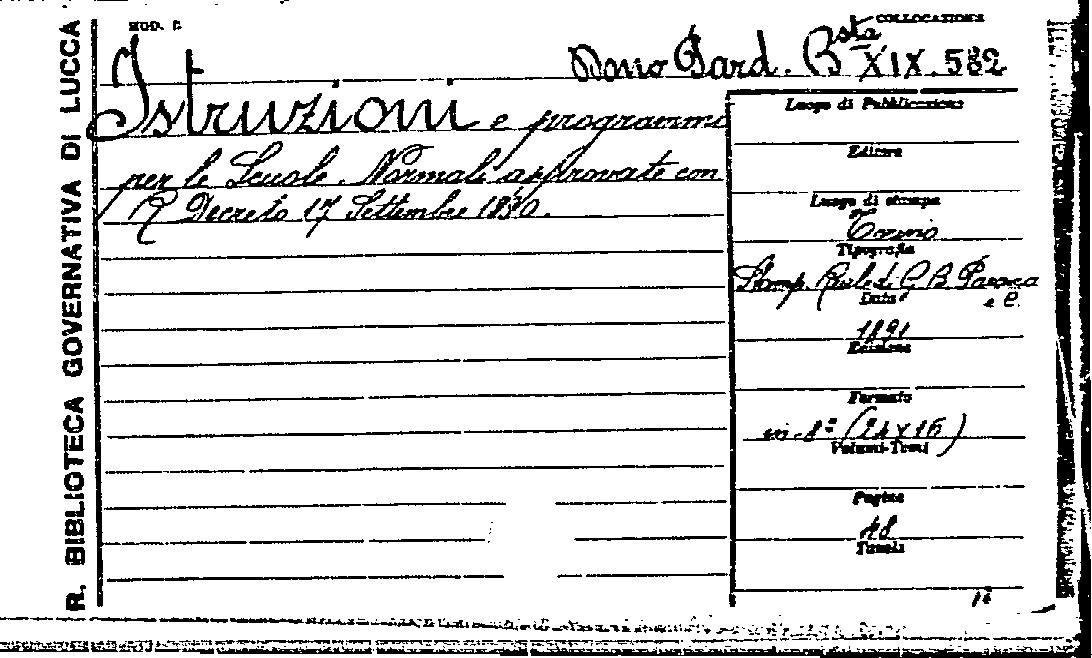 R. BIBLIOTECA GOVERNATIVA DI LUCCA
MOD. C
COLLOCAZIONE
Dono Gard. Bsta XIX. 582
Istruzioni e programmi
per le Scuole Normali approvate con
R Decreto 17 Settembre 1890.
Luogo di Pubblicazione
Editore
Luogo di stampa
Torino
Tipografia
Stamp. Reale di G B Paravia
e C.
Data
1891
Edizione
Formato
in-8° (24x16)
Volumi-Tomi
Pagine
48
Tavole